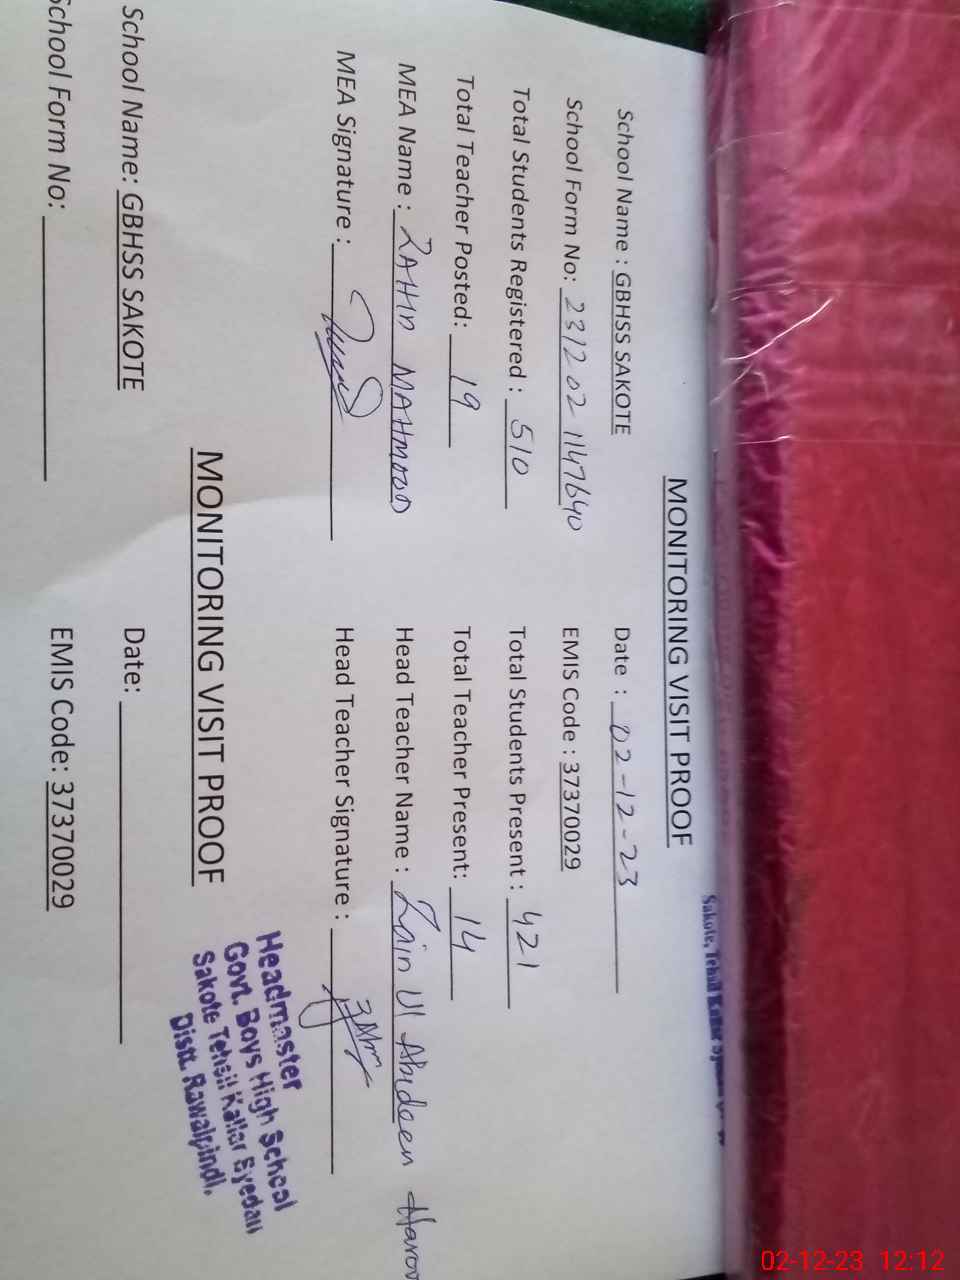 Sakote, Tehsil Kallar Syedan
MONITORING VISIT PROOF
School Name : GBHSS SAKOTE Date : 02-12-23
School Form No: 231202 1147640 EMIS Code : 37370029
Total Students Registered : 510 Total Students Present : 421
Total Teacher Posted: 19 Total Teacher Present: 14
MEA Name : ZAHID MAHMOOD Head Teacher Name : Zain Ul Abideen
MEA Signature : Head Teacher Signature :
Headmaster
Govt. Boys High School
Sakote Tehsil Kallar Syedan
Distt. Rawalpindi.
MONITORING VISIT PROOF
School Name: GBHSS SAKOTE Date:
School Form No: EMIS Code: 37370029
02-12-23 12:12